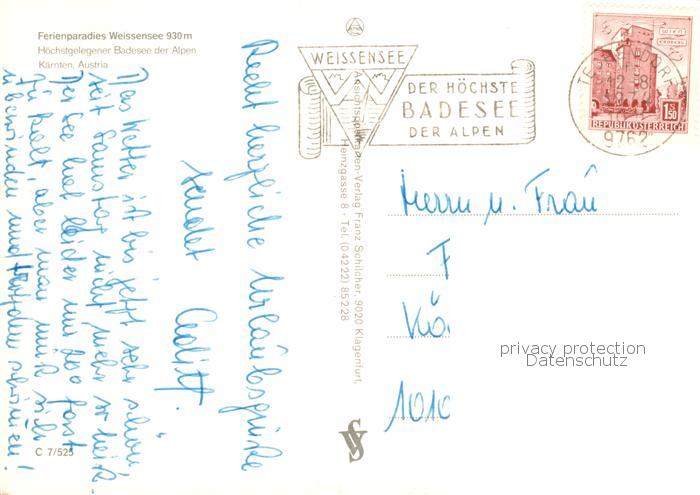 Ferienparadies Weissensee 930 m
Höchstgelegener Badesee der Alpen
Kärnten, Austria
WEISSENSEE
DER HÖCHSTE
BADESEE
DER ALPEN
9762
1.50
REPUBLIK ÖSTERREICH
Recht herzliche Urlaubsgrüße
sendet
Das Wetter ist bis jetzt sehr schön,
seit Samstag nicht mehr so heiß.
Der See hat leider nur 20° fast
zu kalt, aber man muß sich
überwinden und trotzdem schwimmen!
Ansichtspostkarten-Verlag Franz Schilcher, 9020 Klagenfurt,
Heinzgasse 8 · Tel. (0 42 22) 85 2 28
Herrn u. Frau
F
Kö
1010
privacy protection
Datenschutz
C 7/525